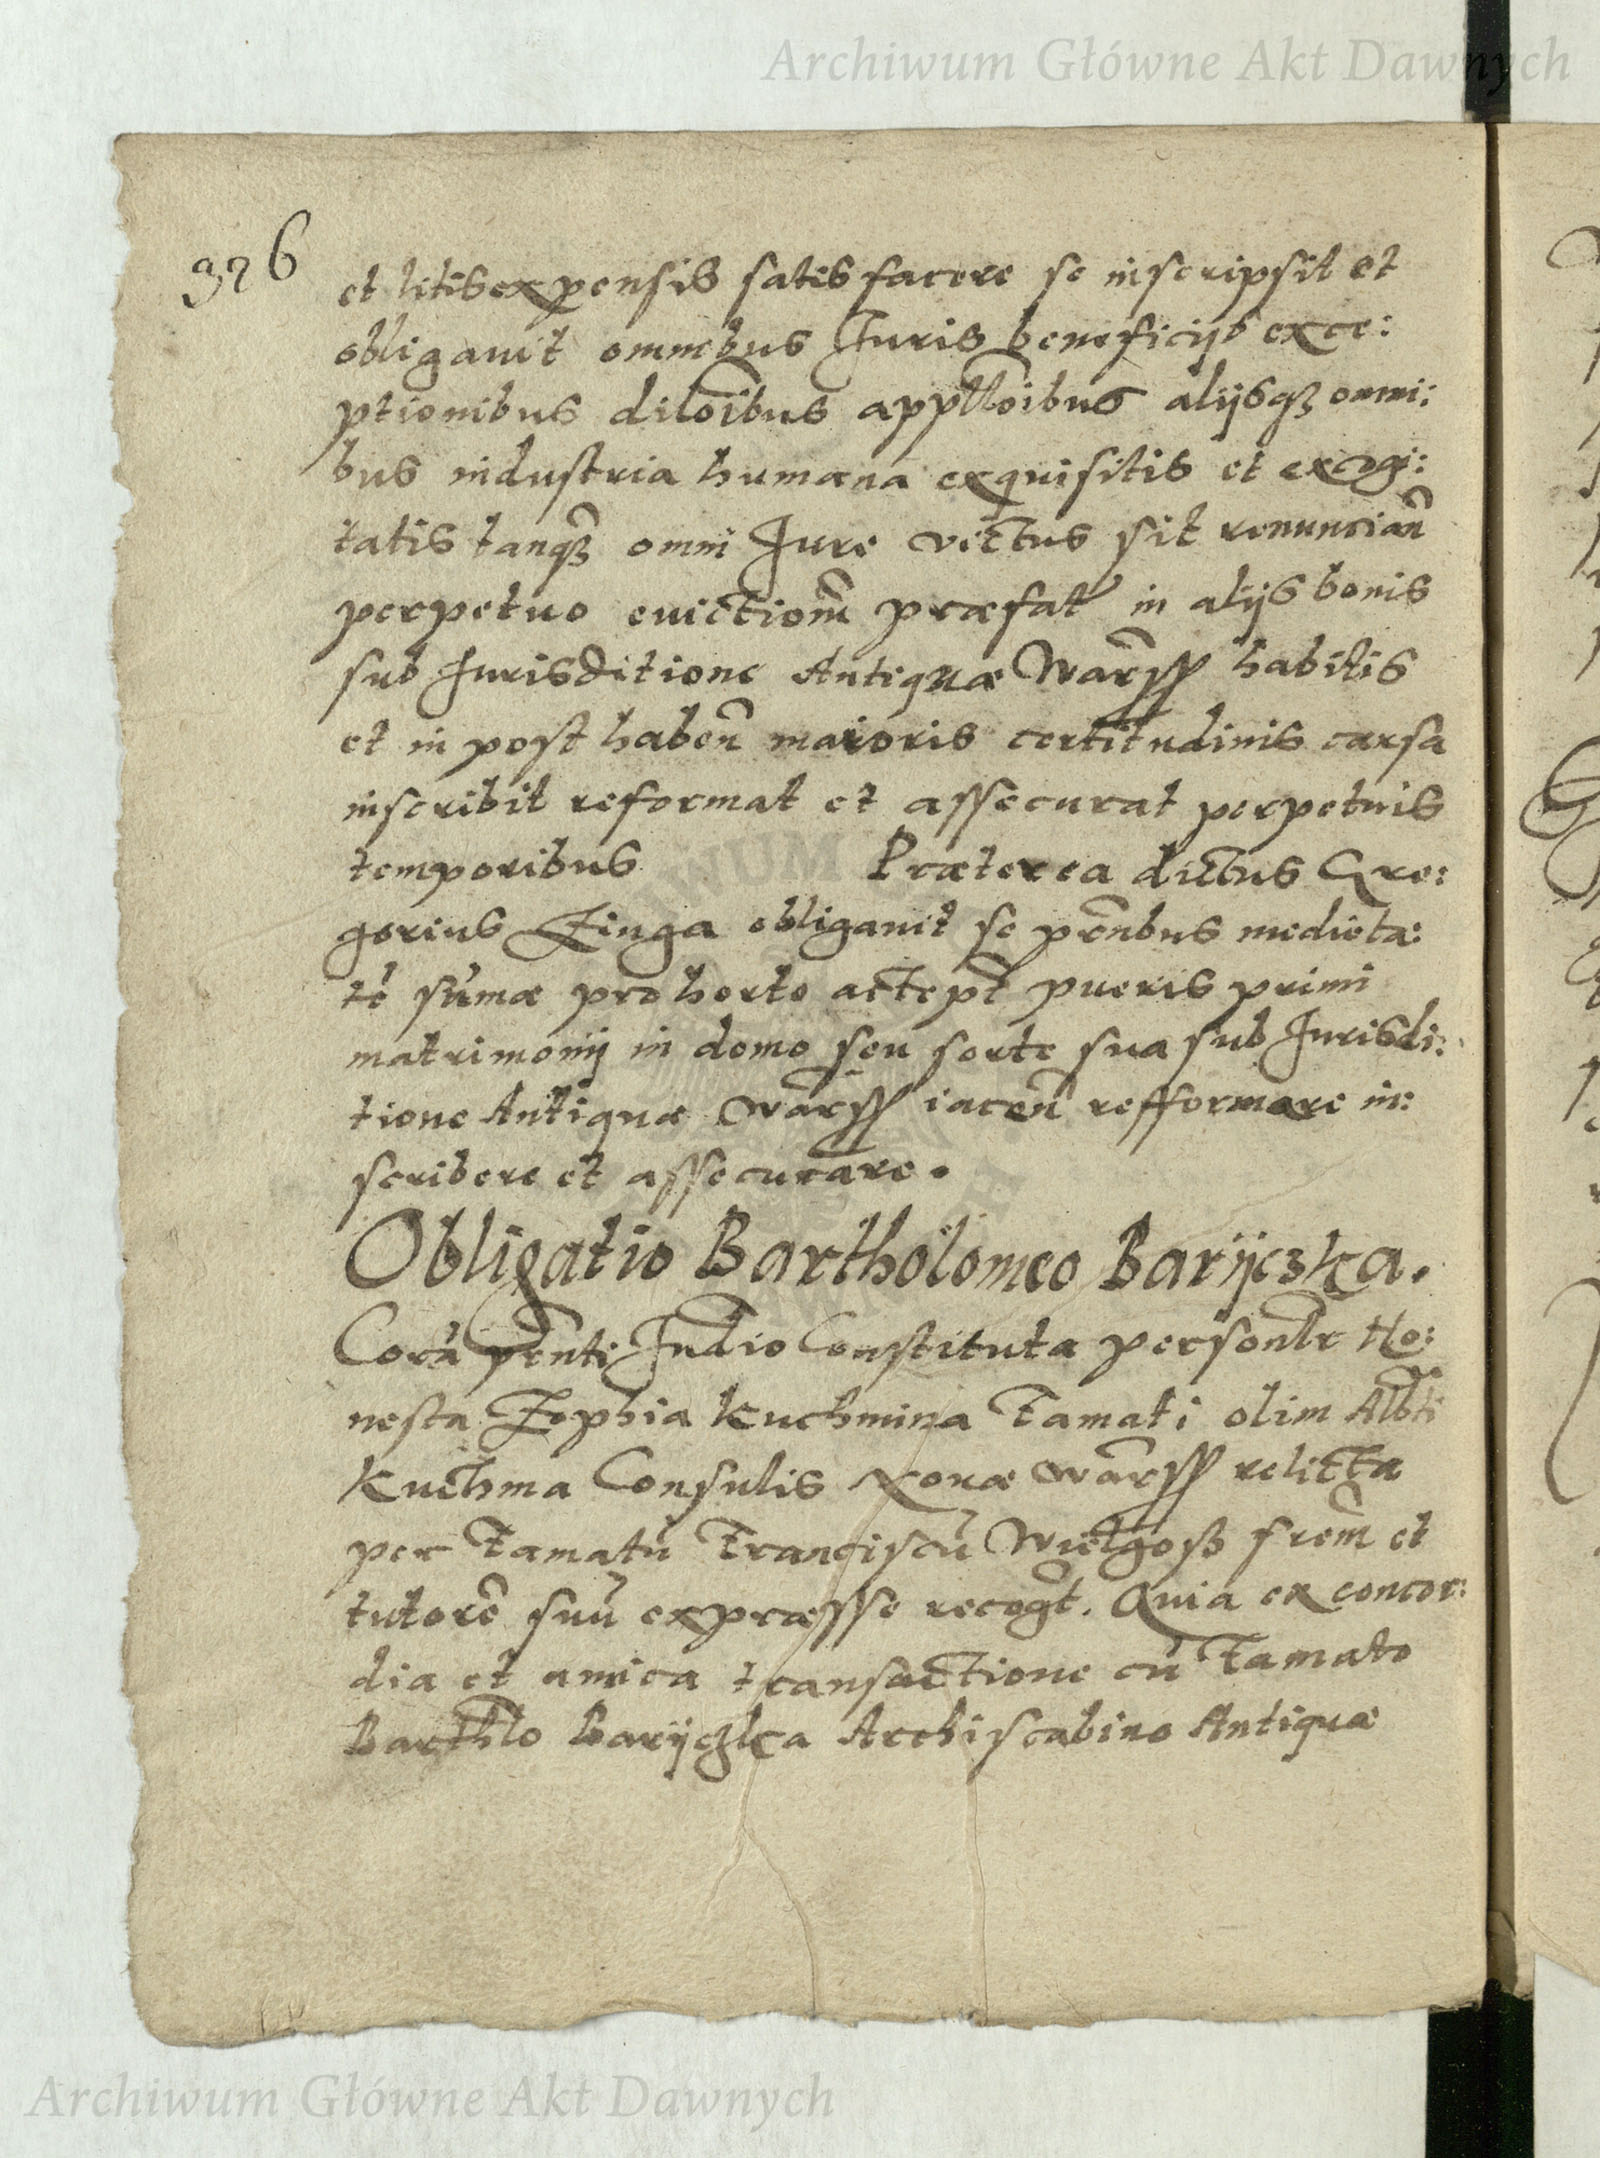 Archiwum Główne Akt Dawnych
376
et litis expensis satisfacere se inscripsit et
obligauit omnibus Juris beneficijs exce:
ptionibus diloibus appllõibus alijsqȝ omni:
bus industria humana exquisitis et excogi:
tatis tanqȝ omni Jure victus sit renuncian̄
perpetuo euictionē præfat in alijs bonis
sub Jurisditione Antiquæ Warss habitis
et in post haben̄ maioris certitudinis causa
inscribit reformat et assecurat perpetuis
temporibus Præterea dictus Gre:
gorius Zinga obligauit se pn̄tibus medieta:
tē sūmæ pro horto accept pueris primi
matrimonij in domo seu sorte sua sub Jurisdi:
tione Antiquæ Warss iacen̄ refformare in:
scribere et assecurare.
Obligatio Bartholomeo Barijczka.
Corā pn̄ti Judio Constituta personlr Ho:
nesta Zophia Kuchmina Famati olim Albti
Kuchma Consulis Nouæ Warss relicta
per Famatū Franciscū Wielgosz frem̄ et
tutorē suū expræsse recogt. Quia ex concor:
dia et amica transactione cū Famato
Barthlo Barijczka Archiscabino Antiquæ
Archiwum Główne Akt Dawnych